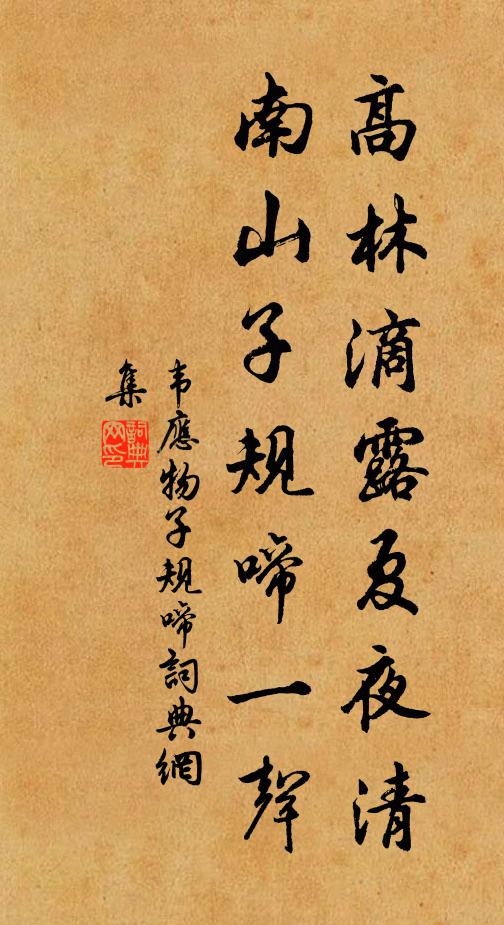 高林滴露夏夜清
南山子規啼一聲
韦應物子規啼詞典網
集
詞典
网印